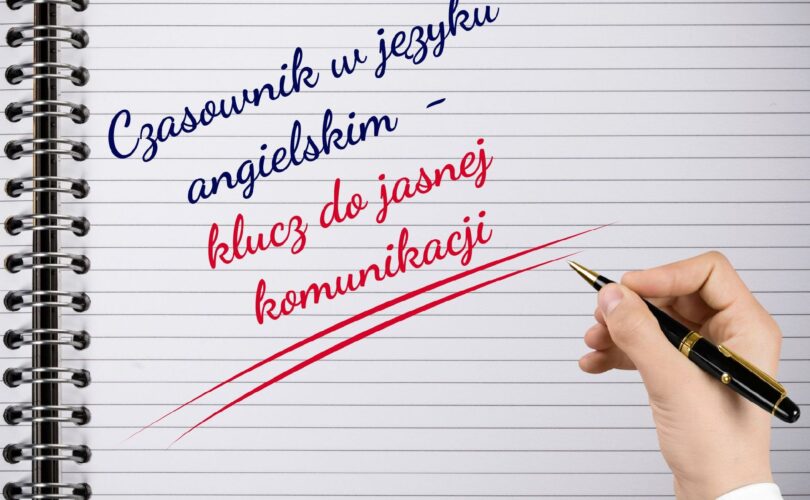 Czasownik w języku
angielskim -
klucz do jasnej
komunikacji